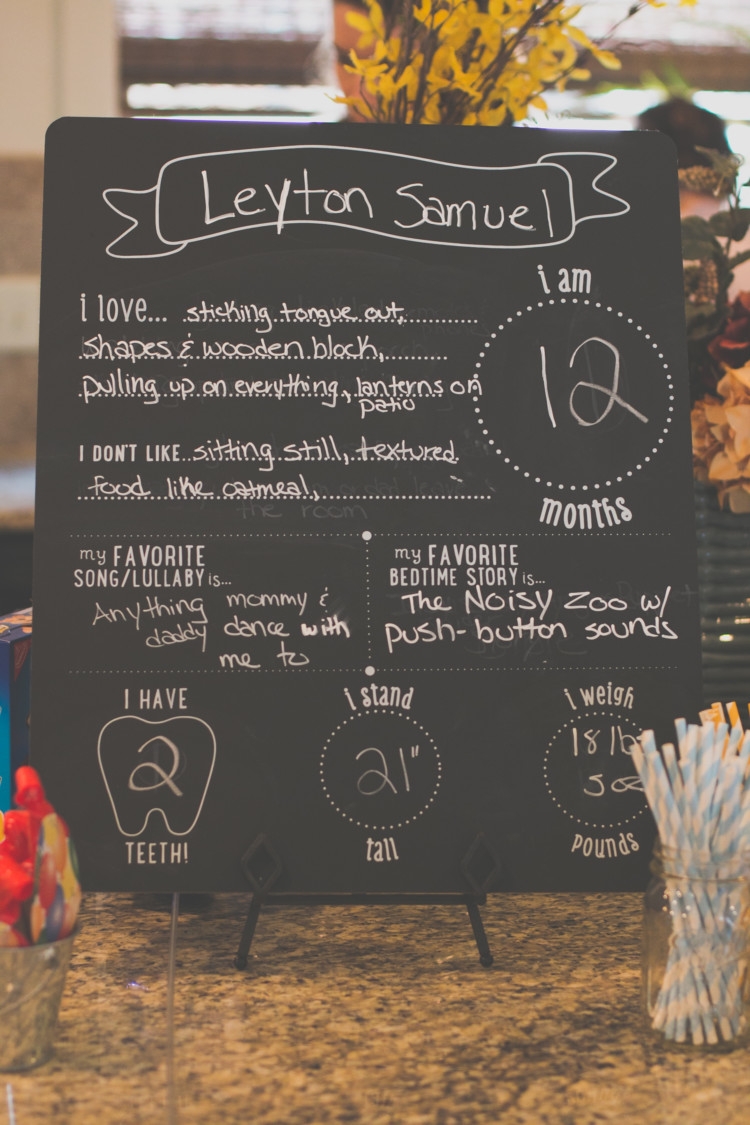 Leyton Samuel
i love... sticking tongue out,
shapes & wooden block,
pulling up on everything, lanterns on
patio
i am
12
months
I DON'T LIKE...sitting still, textured
food like oatmeal,
the room
my FAVORITE
SONG/LULLABY is...
Anything mommy &
daddy dance with
me to
my FAVORITE
BEDTIME STORY is...
The Noisy Zoo w/
push-button sounds
I HAVE
2
TEETH!
i stand
21"
tall
i weigh
18 lb
5 oz
pounds